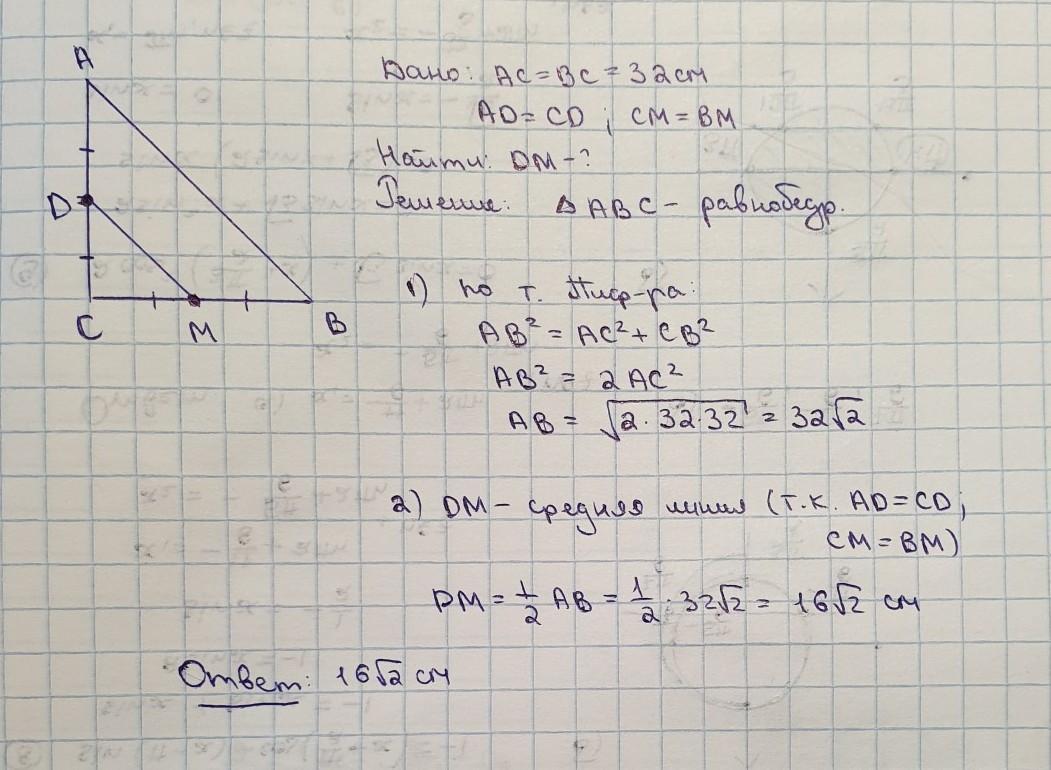 A
D
C
M
B
Дано: AC = BC = 32 см
AD = CD ; CM = BM
Найти: DM - ?
Решение: △ABC - равнобедр.
1) по т. Пиф-ра:
AB² = AC² + CB²
AB² = 2AC²
AB = √2·32·32 = 32√2
2) DM - средняя линия (т.к. AD = CD;
CM = BM)
DM = 1/2 AB = 1/2 · 32√2 = 16√2 см
Ответ: 16√2 см